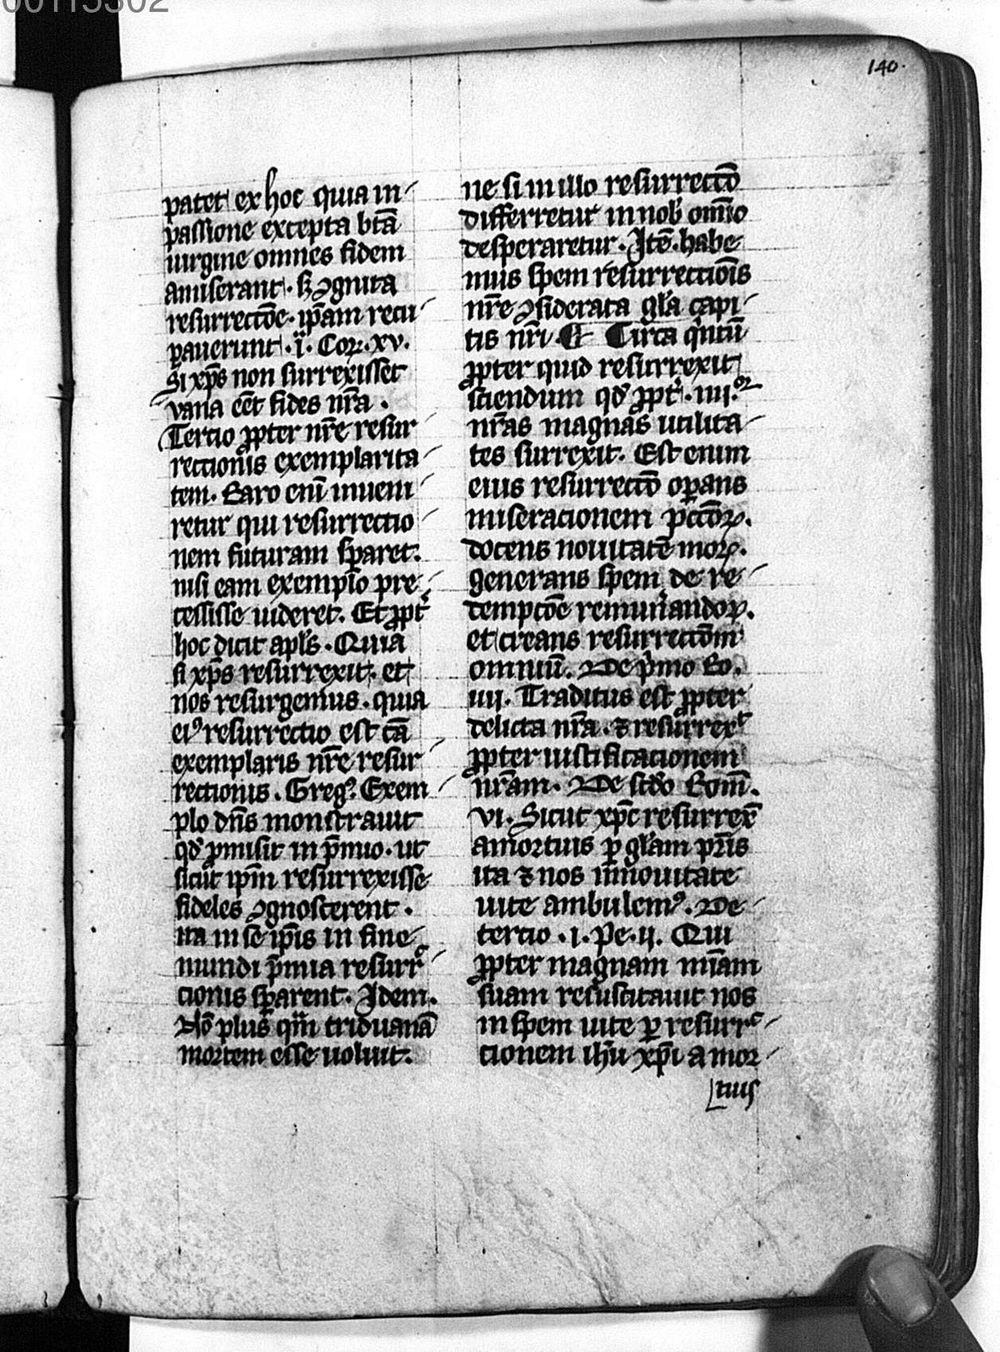 00115302
140.
patet ex hoc quia in-
passione excepta btā
uirgine omnes fidem
amiserant. sꝫ ꝯgnita
resurrectōe. ip̄am recu-
perauerunt. i. Cor. xv.
Si xp̄s non surrexisset
vana eēt fides nr̄a.
Tercio ꝓpter nr̄e resur
rectionis exemplarita-
tem. Raro enī inueni-
retur qui resurrectio-
nem futuram sꝑaret.
nisi eam exemplo pre-
cessisse uideret. Et ꝓpt̓
hoc dicit apl̄s. Quia
si xp̄s resurrexit. et
nos resurgemus. quia
eiꝰ resurrectio est cā
exemplaris nr̄e resur-
rectionis. Gregꝰ. Exem-
plo dn̄s monstrauit
qd̓ ꝓmisit in p̄mio. ut
sicut ip̄m resurrexisse
fideles ꝯgnoscerent.
ita in se ip̄is in fine
mundi p̄mia resurrec-
cionis sꝑarent. Idem.
Nō plus qm̄ triduanā
mortem esse uoluit.
ne si in illo resurrectō
differretur in nob̓ om̄io
desperaretur. Itē. habe-
mus spem resurrectiōis
nr̄e ꝯsiderata gl̄a capi-
tis nr̄i. ¶ Circa q̓ntū
ꝓpter quid resurrexit
sciendum qd̓ ꝓpt̓. iiii.
nr̄as magnas utilita-
tes surrexit. Est enim
eius resurrectō oꝑans
miseracionem pctōꝝ.
docens nouitatē moꝝ.
generans spem de re-
dempcōe remun̓andoꝝ.
et creans resurrectōm
omniū. De p̓mo Ro.
iiii. Traditus est ꝓpter
delicta nr̄a. ⁊ resurrex̓
ꝓpter iustificacionem
nr̄am. De sc̄do Rom̄.
vi. Sicut xp̄c resurrex̄
a mortuis ꝑ gl̄am pr̄is
ita ⁊ nos in nouitate
uite ambulemꝰ. De
tercio. i. Pe. ii. Qui
ꝓpter magnam mi̅am
suam resuscitauit nos
in spem uite ꝑ resurrec-
cionem ih̄u xp̄i a mor-
tuis